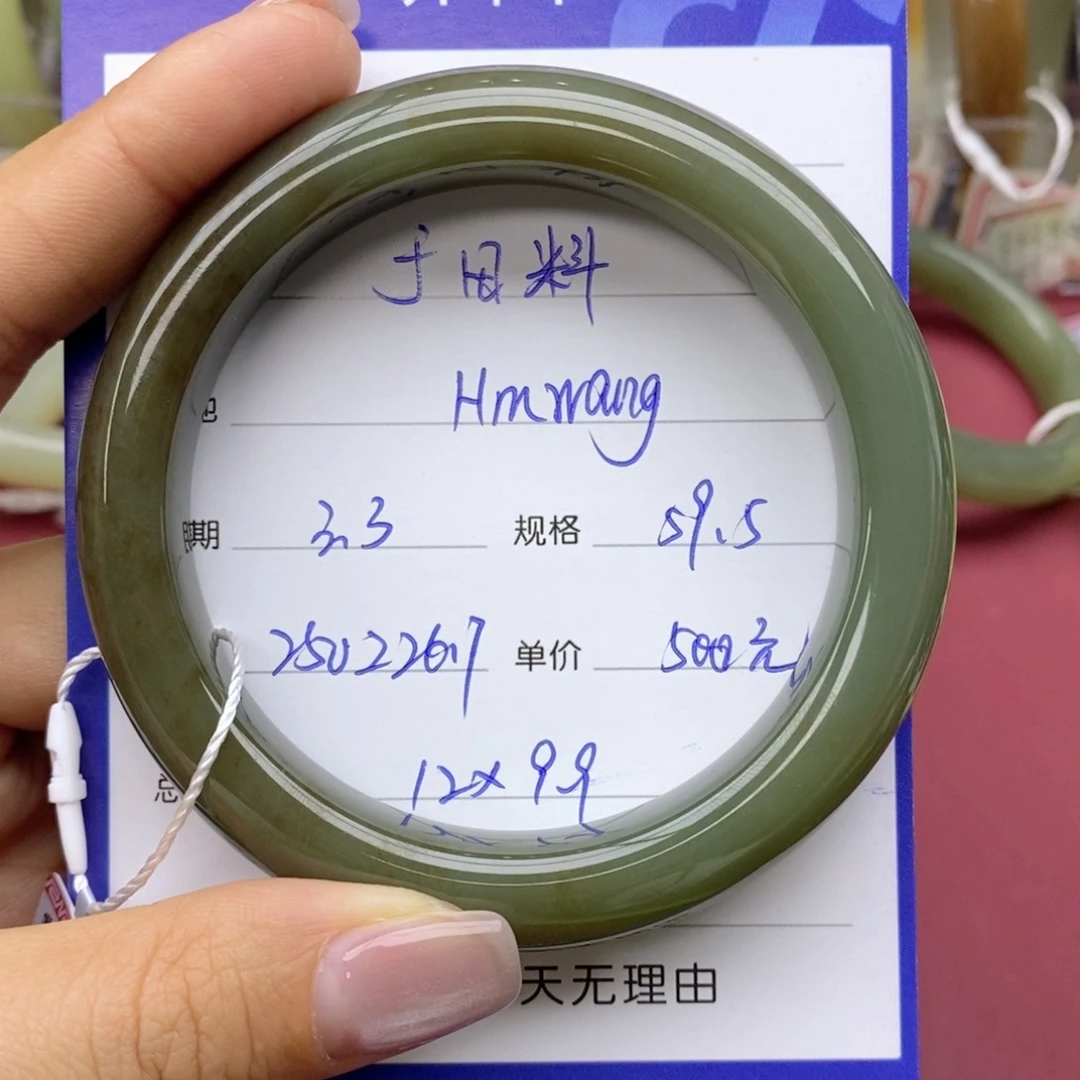 于田料
Hmwang
期 3.3 规格 59.5
2502267 单价 500元
12x9.9
总
天无理由